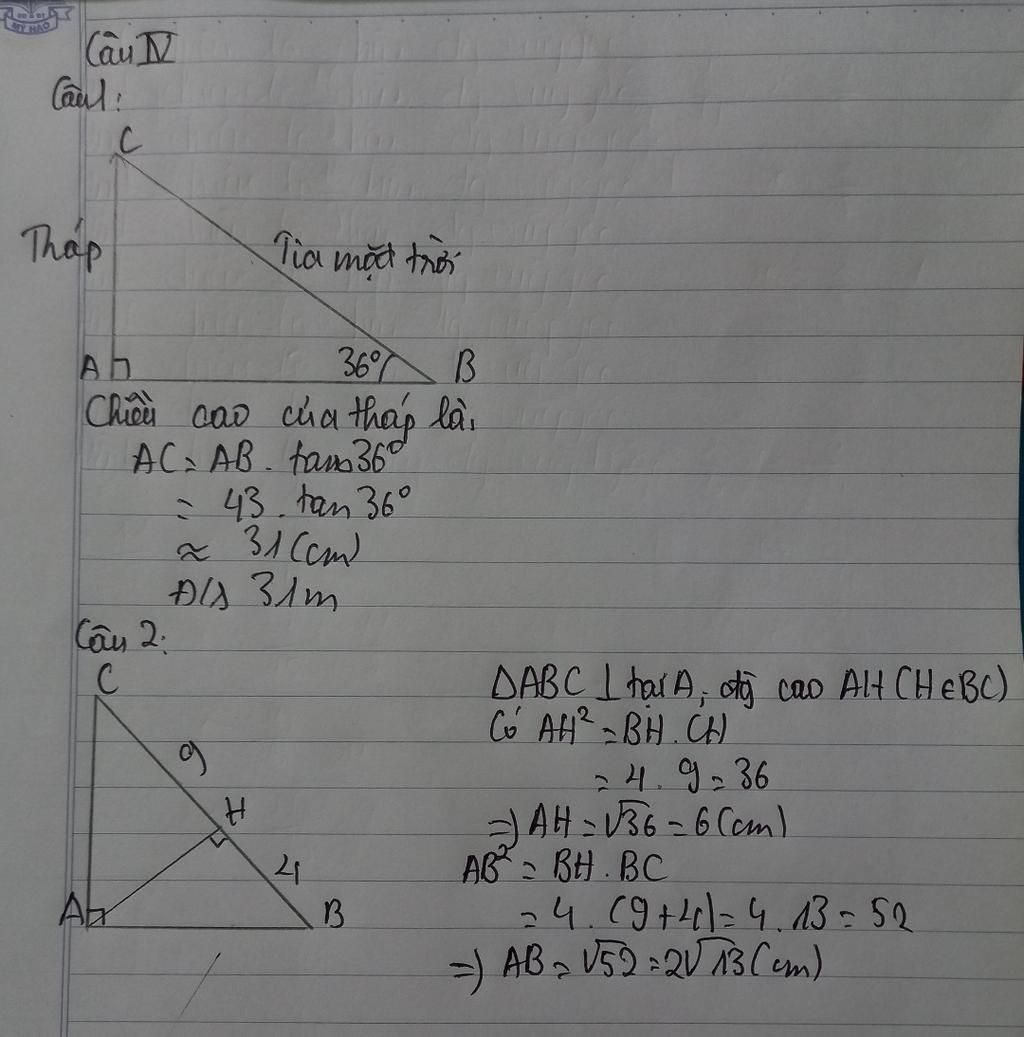 MỸ HÀO
Câu IV
Câu1:
C
Tháp
Tia mặt trời
A
36°
B
Chiều cao của tháp là,
AC = AB . tan36°
= 43 . tan 36°
≈ 31 (cm)
Đ/s 31m
Câu 2:
C
9
H
4
A
B
ΔABC ⊥ tại A, đg cao AH (H∈BC)
Có AH² = BH . CH
= 4 . 9 = 36
=) AH = √36 = 6 (cm)
AB² = BH . BC
= 4 . (9+4) = 4 . 13 = 52
=) AB = √52 = 2√13 (cm)